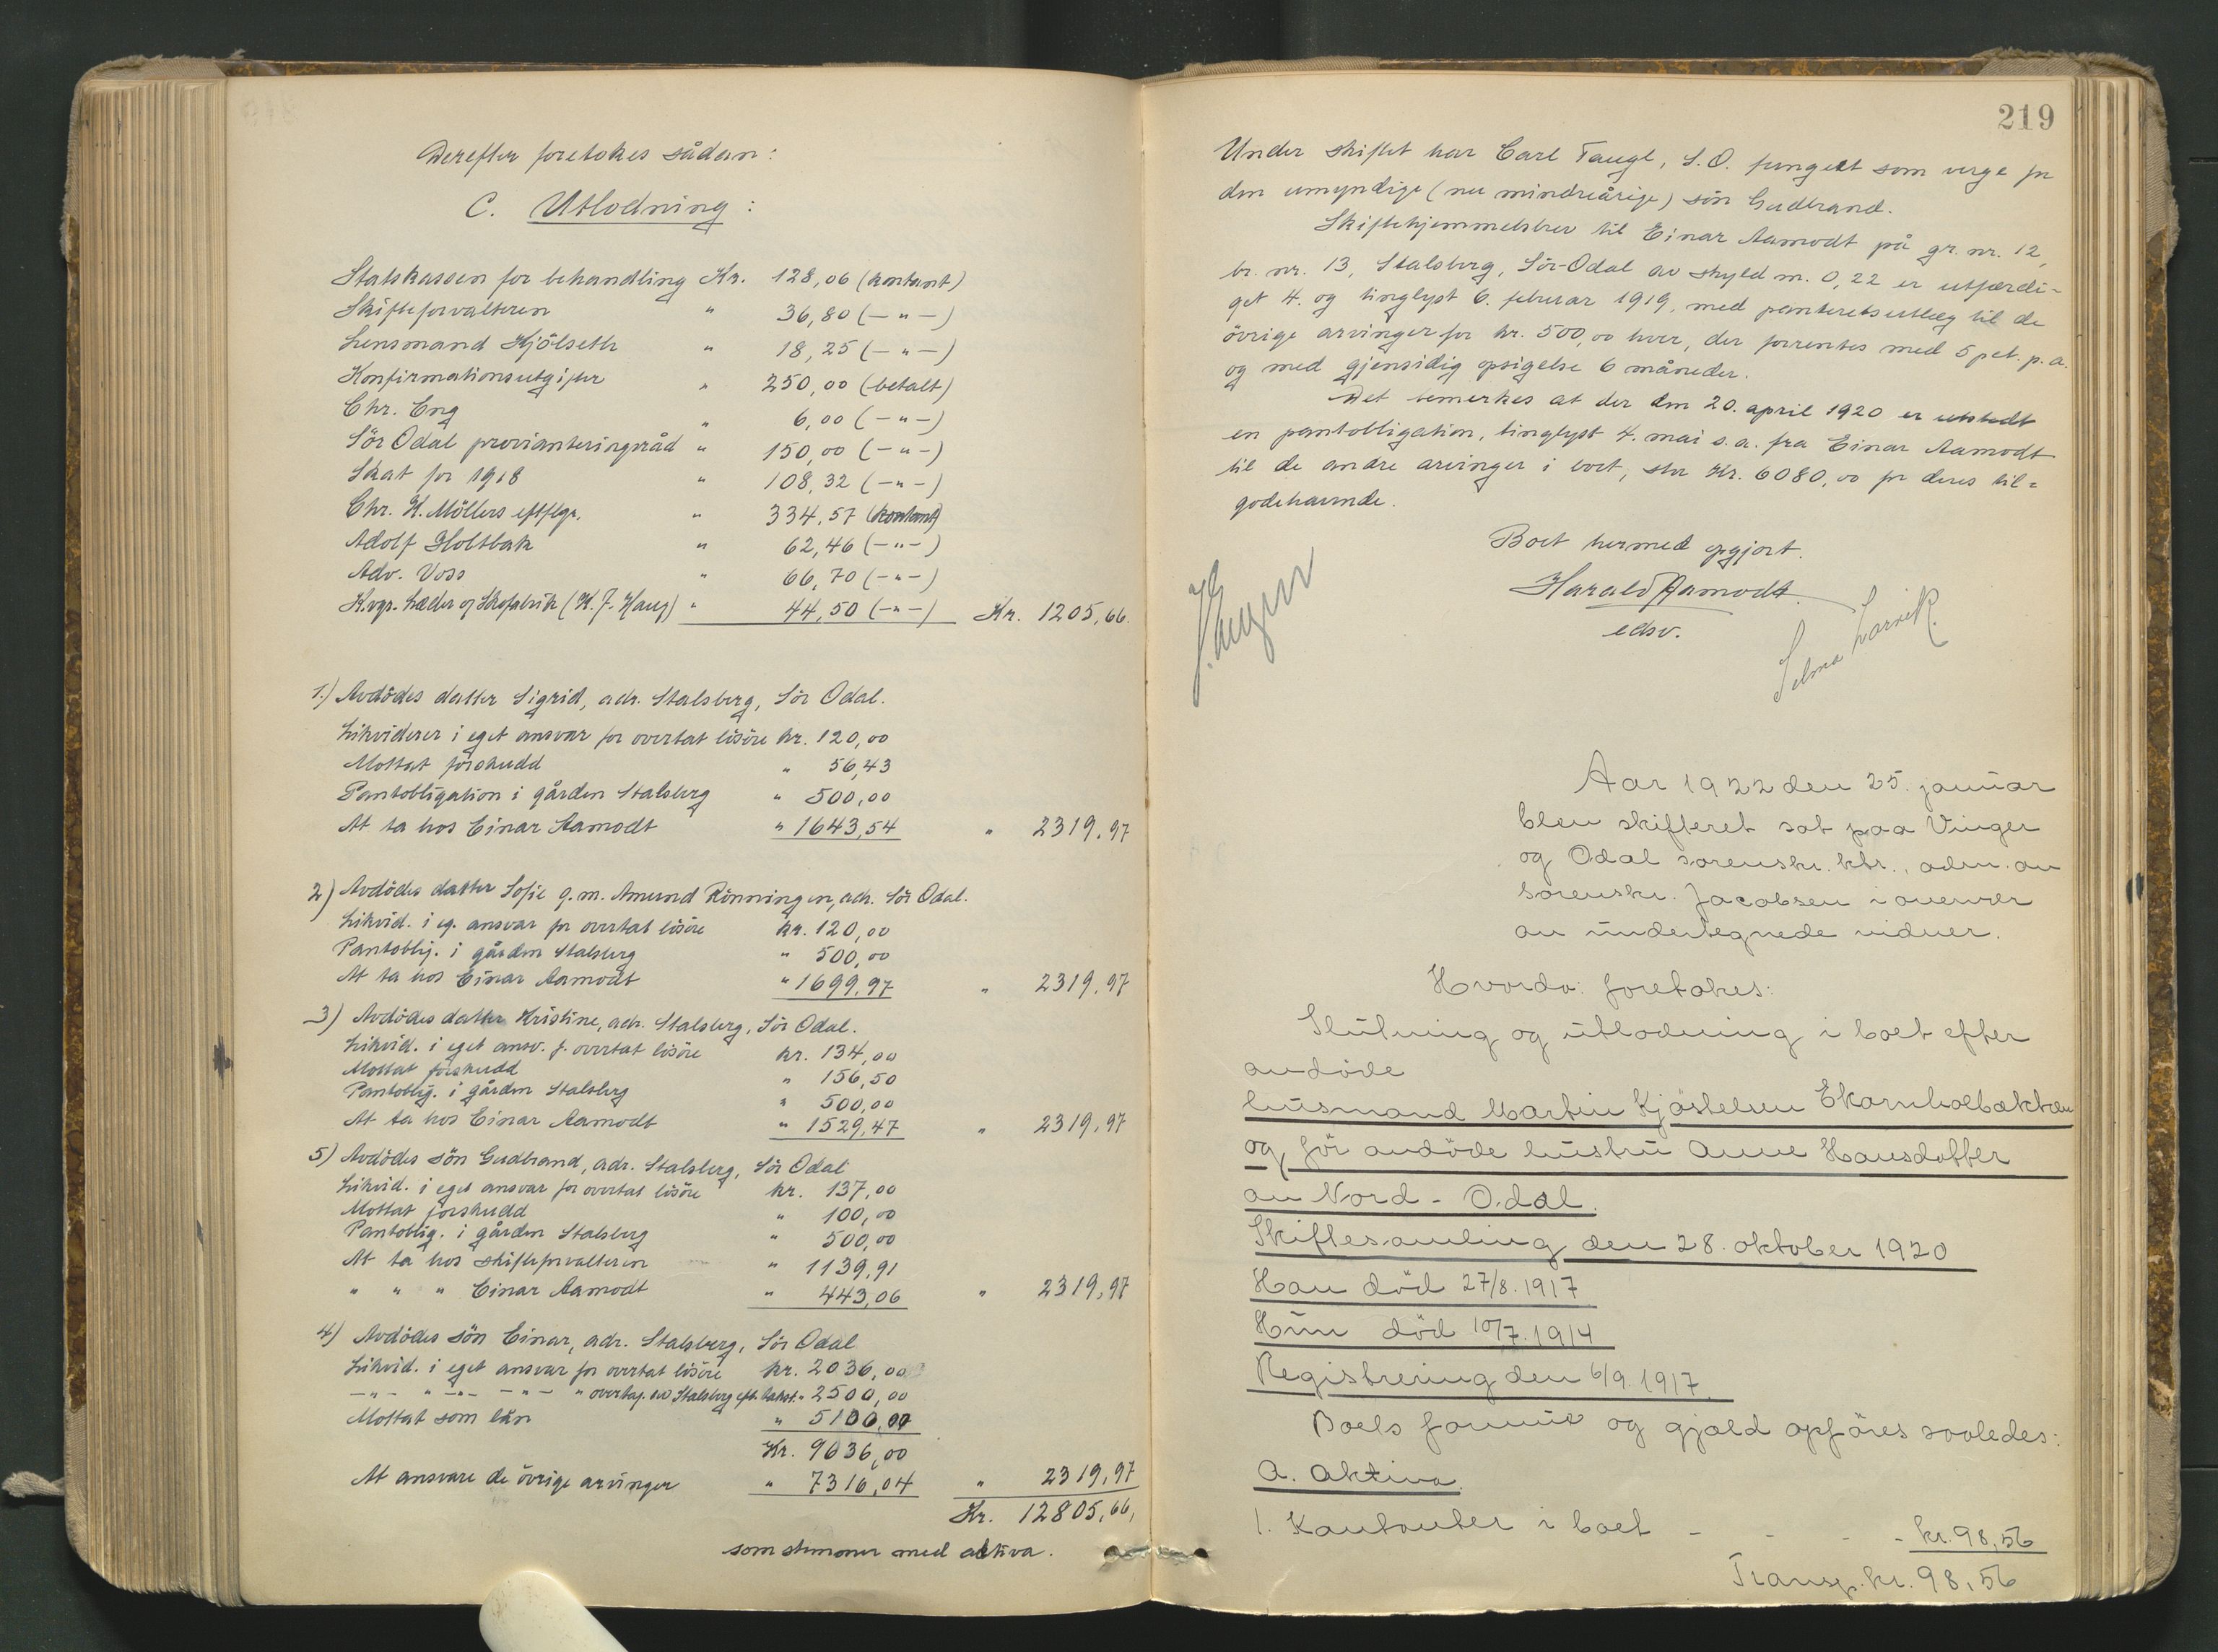 Derefter foretokes sådan:
C. Utlodning:
Statskassen for behandling Kr. 128,06 (kontant)
Skifteforvalteren " 36,80 (-"-)
Lensmand Kjölseth " 18,25 (-"-)
Konfirmationsutgifter " 250,00 (betalt)
Chr. Eng " 6,00 (-"-)
Sör Odal provianteringsråd " 150,00 (-"-)
Skat for 1918 " 108,32 (-"-)
Chr. H. Möllers eftflgr. " 334,57 (kontant)
Adolf Holtbak " 62,46 (-"-)
Adv. Voss " 66,70 (-"-)
K.vgr. Læder og Skofabrik (K. F. Haug) " 44,50 (-"-) Kr. 1205,66.
1.) Avdödes datter Sigrid, adr. Stalsberg, Sör Odal.
Likviderer i eget ansvar for overtat lösöre kr. 120,00
Mottat forskudd " 56,43
Pantobligation i gården Stalsberg " 500,00
At ta hos Einar Aamodt " 1643,54 " 2319,97
2) Avdödes datter Sofie g.m. Amund Rönningen, adr. Sör Odal.
Likvid. i eg. ansvar for overtat lösöre kr. 120,00
Pantoblig. i gården Stalsberg " 500,00
At ta hos Einar Aamodt " 1699,97 " 2319,97
3) Avdödes datter Kristine, adr. Stalsberg, Sör Odal.
Likvid. i eget ansv. f. overtat lösöre kr. 134,00
Mottat forskudd " 156,50
Pantoblig. i gården Stalsberg " 500,00
At ta hos Einar Aamodt " 1529,47 " 2319,97
5) Avdödes sön Gudbrand, adr. Stalsberg, Sör Odal
Likvid. i eget ansvar for overtat lösöre kr. 137,00
Mottat forskudd " 100,00
Pantoblig. i gården Stalsberg " 500,00
At ta hos skifteforvalteren " 1139,91
" " " Einar Aamodt " 443,06 " 2319,97
4) Avdödes sön Einar, adr. Stalsberg, Sör Odal
Likvid. i eget ansvar for overtat lösöre kr. 2036,00
-"- " -"- -"- " overtag. av Stalsberg eft. takst. " 2500,00
Mottat som lån " 5100,00
Kr. 9636,00
At ansvare de övrige arvinger " 7316,04 " 2319,97
Kr. 12805,66,
som stemmer med aktiva.
219
Under skiftet har Carl Taugl, S.O. fungert som verge for
den umyndige (nu mindreårige) sön Gudbrand.
Skiftehjemmelsbrev til Einar Aamodt på gr. nr. 12,
br. nr. 13, Stalsberg, Sör-Odal av skyld m. 0,22 er utfærdi-
get 4. og tinglyst 6. februar 1919, med panteretsutlæg til de
övrige arvinger for kr. 500,00 hver, der forrentes med 5 pct. p.a.
og med gjensidig opsigelse 6 måneder.
Det bemerkes at der den 20. april 1920 er utstedt
en pantobligation, tinglyst 4. mai s.a. fra Einar Aamodt
til de andre arvinger i boet, stor Kr. 6080,00 for deres til=
godehavende.
Boet hermed opgjort.
Harald Aamodt.
edsv.
Selma Larvik.
Aar 1922 den 25. januar
blev skifteret sat paa Vinger
og Odal sorenskr. ktr., adm. av
sorenskr. Jacobsen i overvær
av undertegnede vidner.
Hvorda: foretokes:
Slutning og utlodning i boet efter
avdöde
husmand Martin Kjöstelsen Ekornholbakken
og för avdöde hustru Anne Hansdatter
av Nord-Odal.
Skiftesamling den 28. oktober 1920
Han död 27/8. 1917
Hun död 10/7. 1914
Registrering den 6/9. 1917.
Boets formue og gjæld opföres saaledes:
A. Aktiva.
1. Kontanter i boet - - - - kr. 98,56
Transp. kr. 98,56